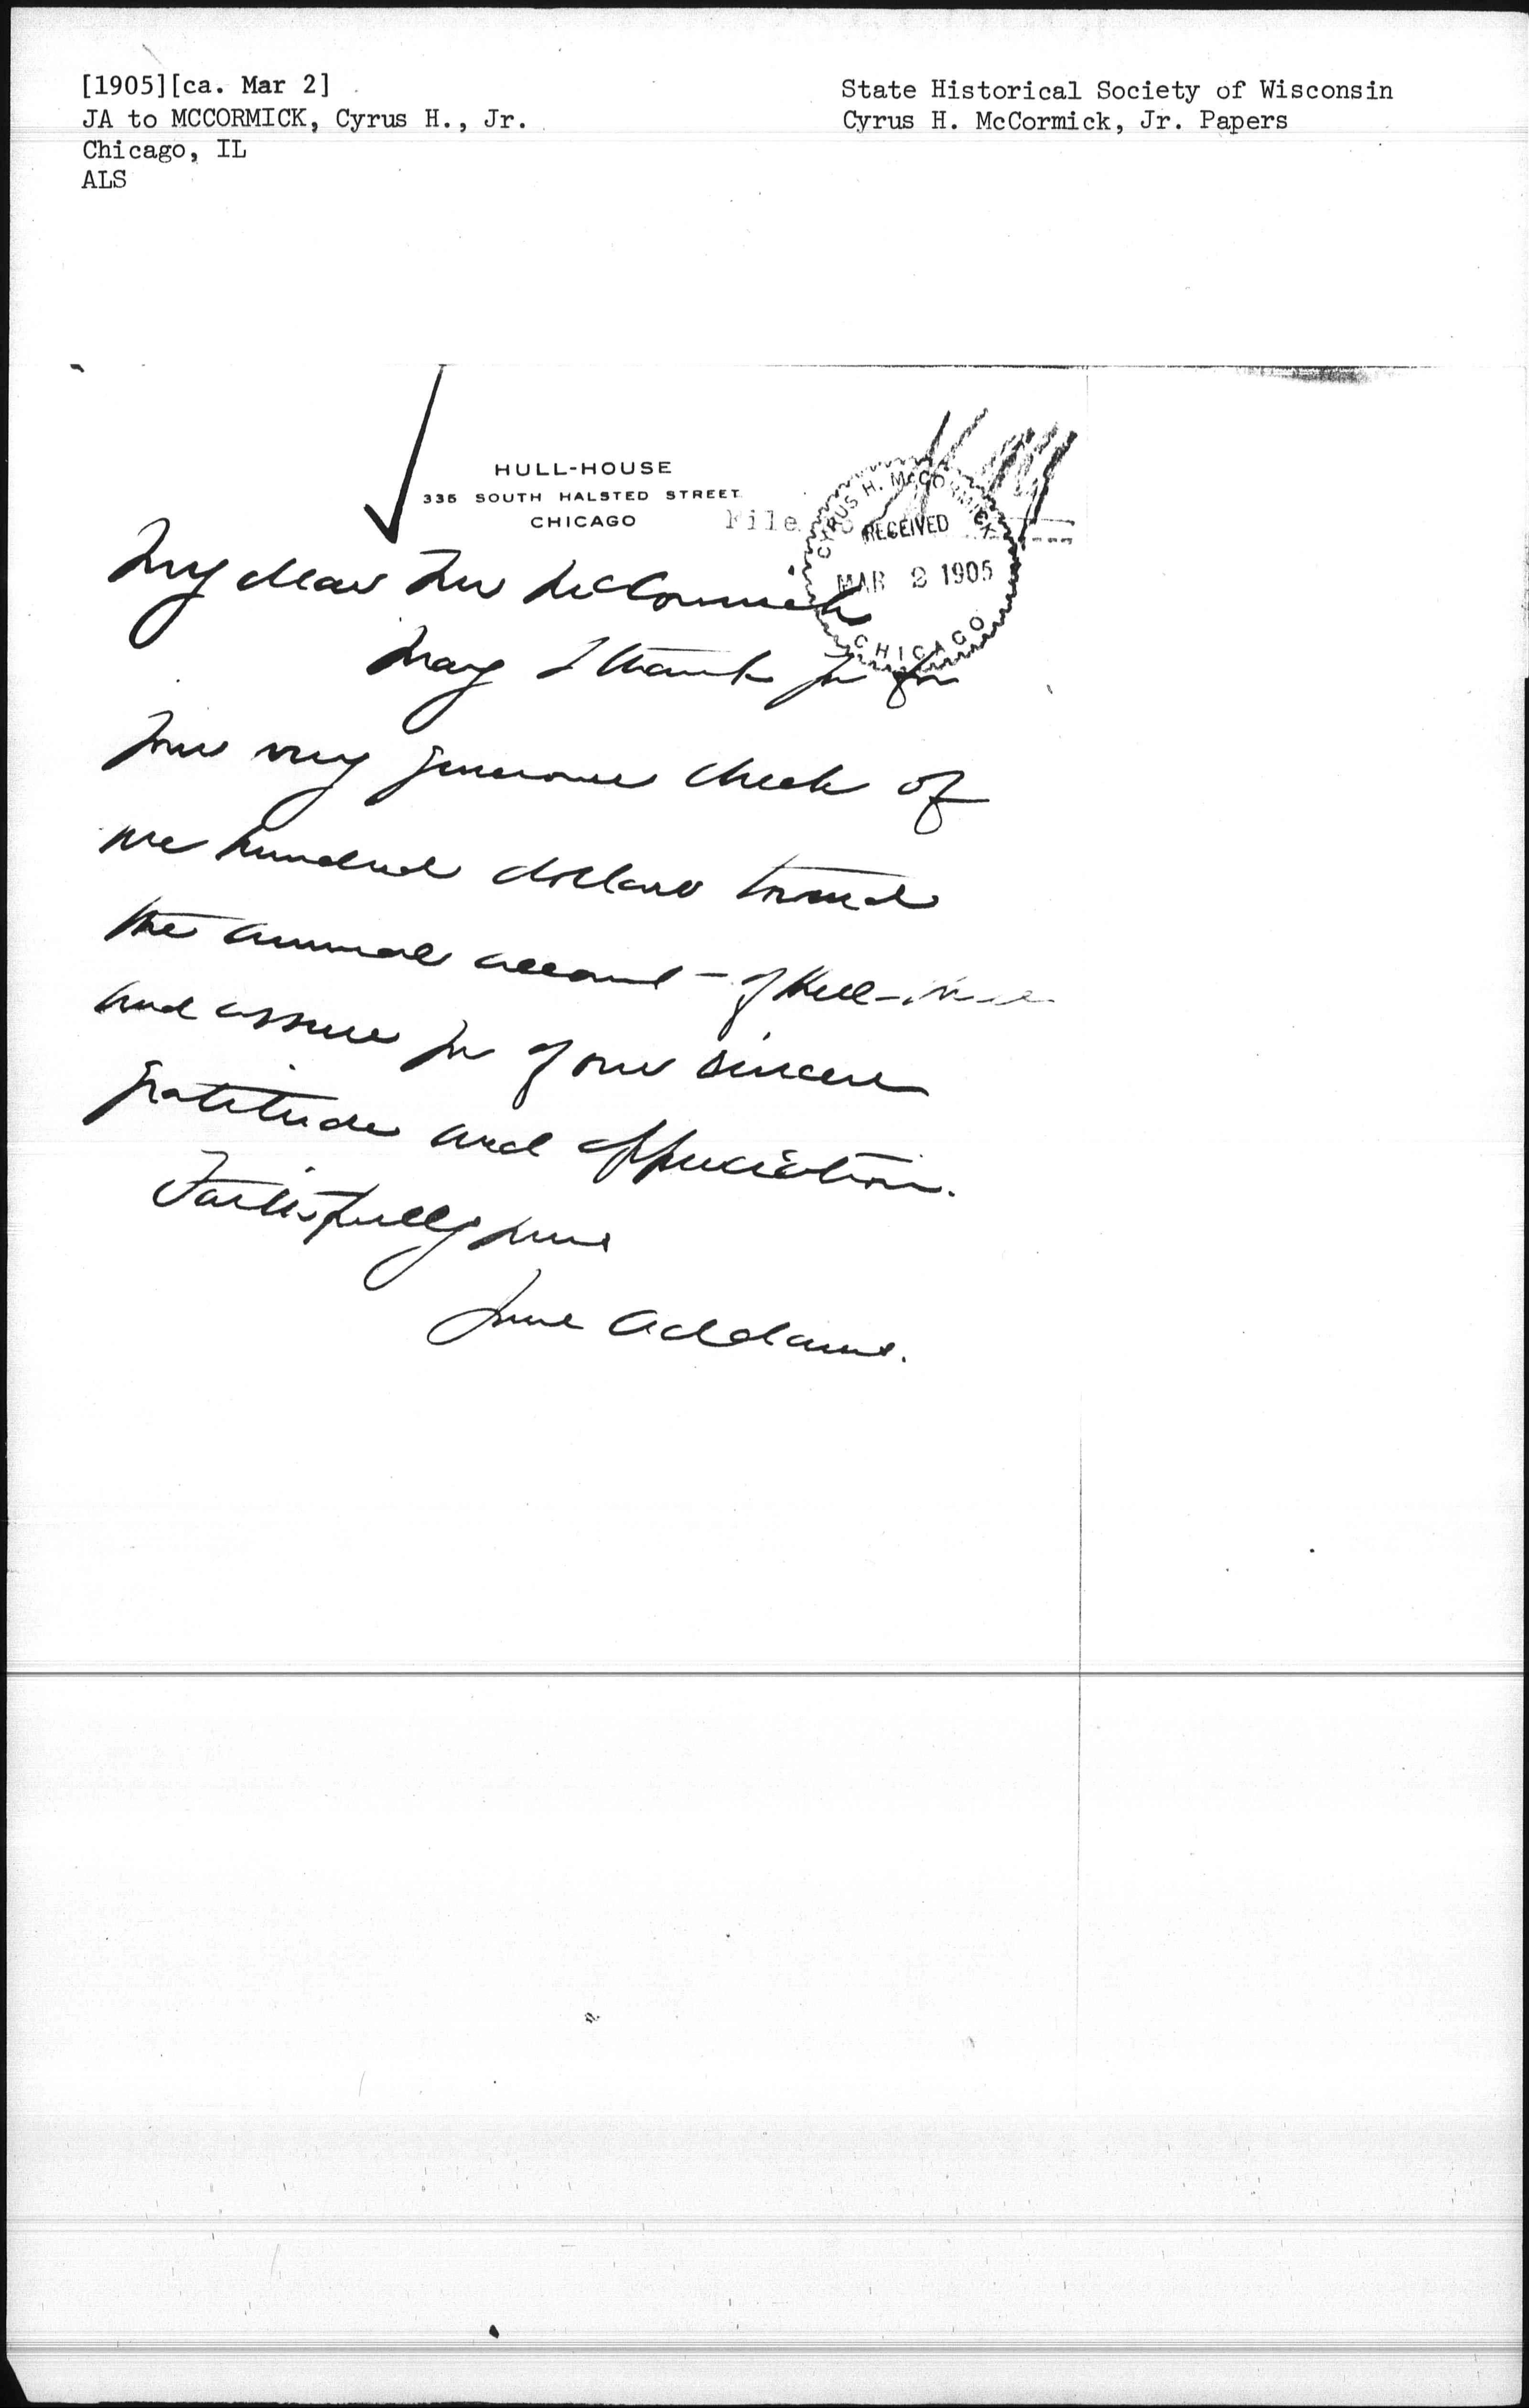 [1905][ca. Mar 2]
JA to MCCORMICK, Cyrus H., Jr.
Chicago, IL
ALS
State Historical Society of Wisconsin
Cyrus H. McCormick, Jr. Papers
HULL-HOUSE
335 SOUTH HALSTED STREET
CHICAGO
File
CYRUS H. McCORMICK
RECEIVED
MAR 2 1905
CHICAGO
My dear Mr McCormick
May I thank you for
your very generous check of
one hundred dollars toward
the annual account - of Hull-House
and assure you of our sincere
gratitude and appreciation.
Faithfully yours
Jane Addams.